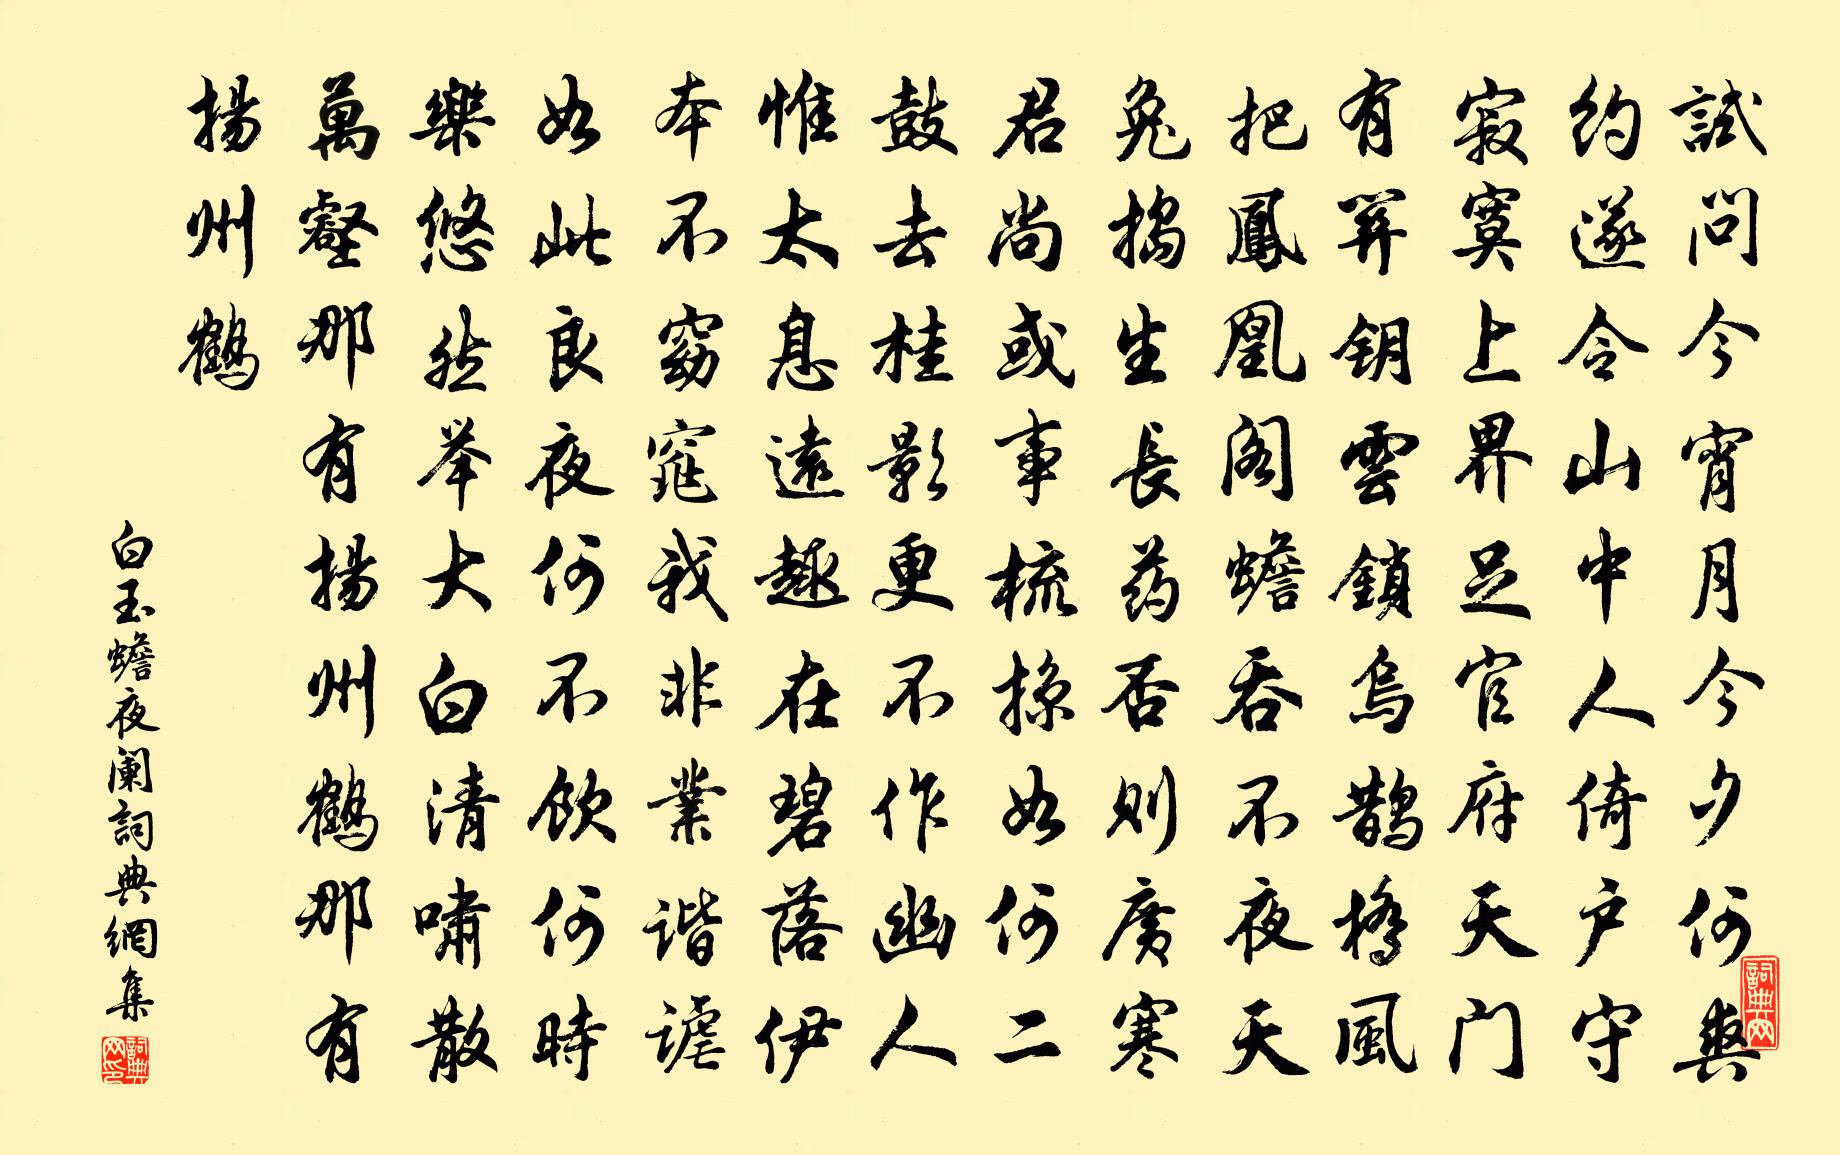 試問今宵月今夕何爽
約遂令山中人倚户守
寂寞上界足官府天门
有關钥雲鎖烏鵲橋風
把鳳凰阁蟾吞不夜天
兔搗生長药否则廣寒
君尚或事梳掠如何二
鼓去桂影更不作幽人
惟太息遠趣在碧落伊
本不窈窕我非業谐謔
如此良夜何不飲何時
樂悠然举大白清嘯散
萬壑那有揚州鶴那有
揚州鶴
白玉蟾夜阑詞典網集
詞典网
詞典网印